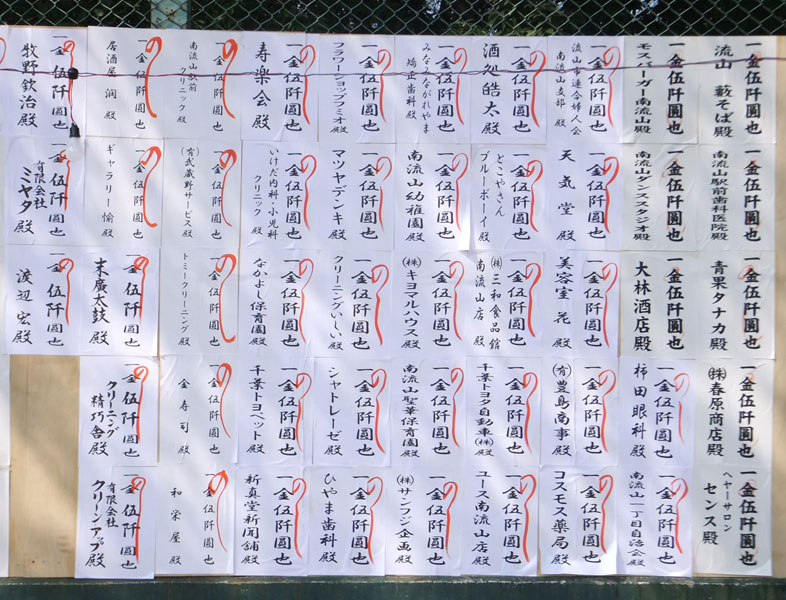 一金伍阡圓也
流山 藪そば殿
一金伍阡圓也
モスバーガー南流山殿
一金伍阡圓也
流山市連合婦人会
南流山支部 殿
一金伍阡圓也
酒処皓太殿
一金伍阡圓也
みなみながれやま
矯正歯科 殿
一金伍阡圓也
フラワーショップフミオ殿
一金伍阡圓也
寿楽会殿
一金伍阡圓也
南流山駅前
クリニック 殿
一金伍阡圓也
居酒屋 潤 殿
一金伍阡圓也
牧野欽治 殿
一金伍阡圓也
南流山駅前歯科医院殿
一金伍阡圓也
南流山ダンススタジオ殿
一金伍阡圓也
天気堂 殿
一金伍阡圓也
とこやさん
ブルーボーイ 殿
一金伍阡圓也
南流山幼稚園 殿
一金伍阡圓也
マツヤデンキ 殿
一金伍阡圓也
いけだ内科・小児科
クリニック 殿
一金伍阡圓也
(有)武蔵野サービス 殿
一金伍阡圓也
ギャラリー愉 殿
一金伍阡圓也
有限会社
ミヤタ 殿
一金伍阡圓也
青果タナカ殿
一金伍阡圓也
大林酒店殿
一金伍阡圓也
美容室 花 殿
一金伍阡圓也
(株)三和食品館
南流山店 殿
一金伍阡圓也
(株)キヨマルハウス 殿
一金伍阡圓也
クリーニングいしい 殿
一金伍阡圓也
なかよし保育園 殿
一金伍阡圓也
トミークリーニング 殿
一金伍阡圓也
末廣太鼓 殿
一金伍阡圓也
渡辺 宏 殿
一金伍阡圓也
(株)春原商店殿
一金伍阡圓也
柿田眼科 殿
一金伍阡圓也
(有)豊島商事 殿
一金伍阡圓也
千葉トヨタ自動車(株) 殿
一金伍阡圓也
南流山聖華保育園 殿
一金伍阡圓也
シャトレーゼ 殿
一金伍阡圓也
千葉トヨペット 殿
一金伍阡圓也
金寿司 殿
一金伍阡圓也
クリーニング
精巧舎 殿
一金伍阡圓也
ヘヤーサロン
センス殿
一金伍阡圓也
南流山一丁目自治会 殿
一金伍阡圓也
コスモス薬局 殿
一金伍阡圓也
ユース南流山店 殿
一金伍阡圓也
(株)サンフジ企画 殿
一金伍阡圓也
ひやま歯科 殿
一金伍阡圓也
新真堂新聞舗 殿
一金伍阡圓也
和栄屋 殿
一金伍阡圓也
有限会社
クリーンアップ 殿